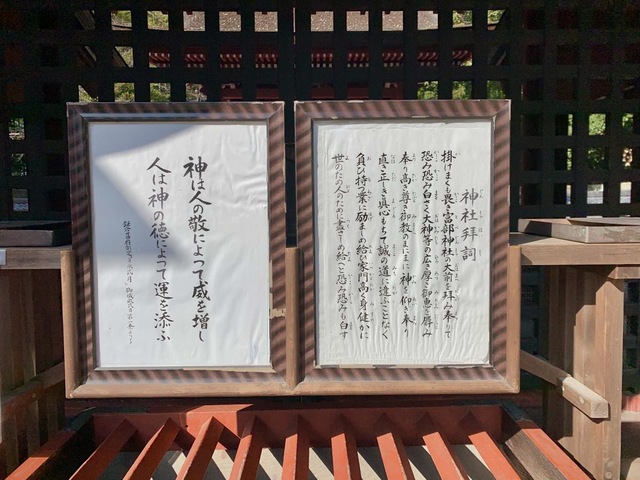 神社拝詞
掛けまくも畏き宮部神社の大前を拝み奉りて
恐み恐み白さく大神等の広き厚き御恵を辱み
奉り高き尊き御教のまにまに神の仰ぎ奉り
直き正しき真心もちて誠の道に違ふことなく
負ひ持つ業に励ましめ給ひ家門高く身健かに
世のため人のために盡さしめ給へと恐み恐みも白す
神は人の敬によって威を増し
人は神の徳によって運を添ふ